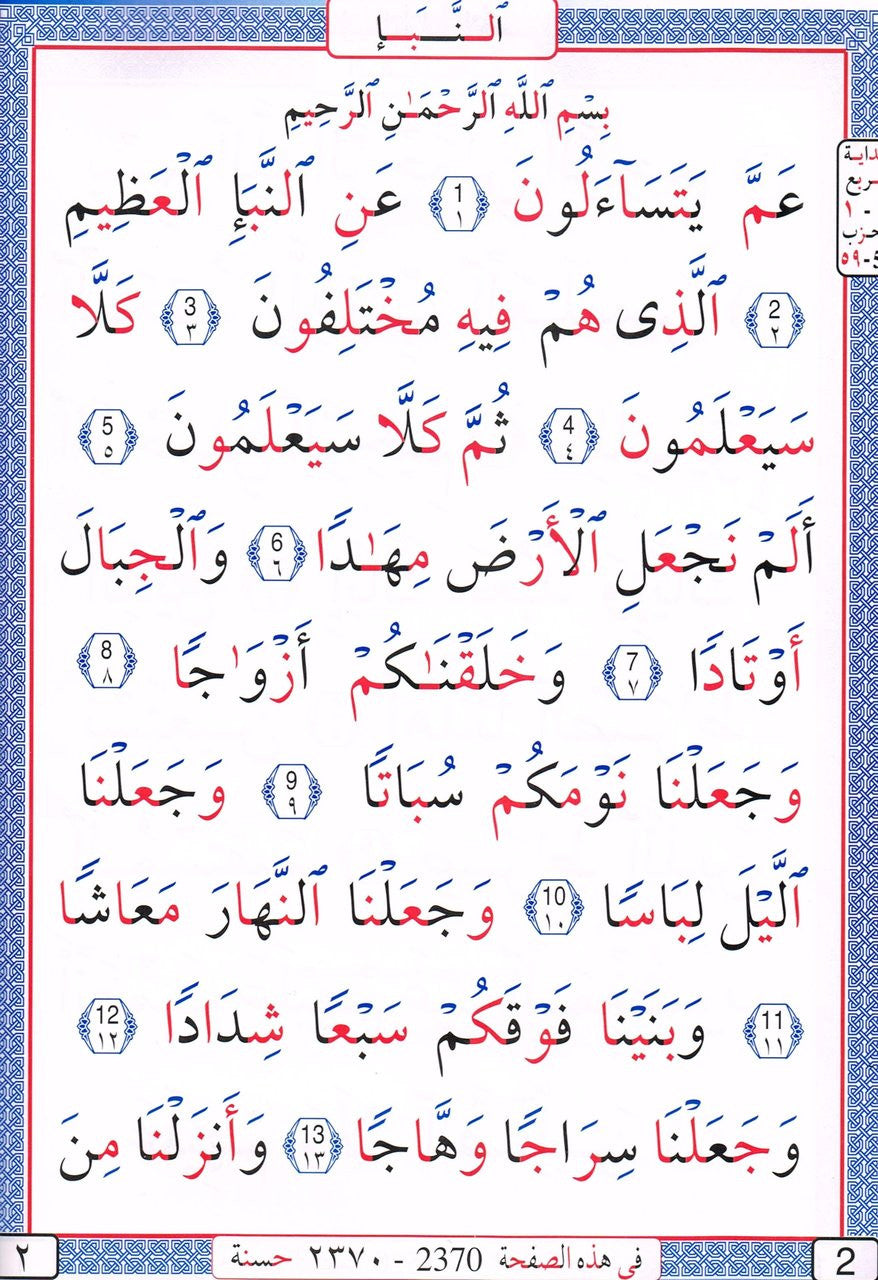 ٱلنَّبَإِ
بِسْمِ ٱللَّهِ ٱلرَّحْمَـٰنِ ٱلرَّحِيمِ
عَمَّ يَتَسَآءَلُونَ 1 ١ عَنِ ٱلنَّبَإِ ٱلْعَظِيمِ
2 ٢ ٱلَّذِى هُمْ فِيهِ مُخْتَلِفُونَ 3 ٣ كَلَّا
سَيَعْلَمُونَ 4 ٤ ثُمَّ كَلَّا سَيَعْلَمُونَ 5 ٥
أَلَمْ نَجْعَلِ ٱلْأَرْضَ مِهَـٰدًا 6 ٦ وَٱلْجِبَالَ
أَوْتَادًا 7 ٧ وَخَلَقْنَـٰكُمْ أَزْوَٰجًا 8 ٨
وَجَعَلْنَا نَوْمَكُمْ سُبَاتًا 9 ٩ وَجَعَلْنَا
ٱلَّيْلَ لِبَاسًا 10 ١٠ وَجَعَلْنَا ٱلنَّهَارَ مَعَاشًا
11 ١١ وَبَنَيْنَا فَوْقَكُمْ سَبْعًا شِدَادًا 12 ١٢
وَجَعَلْنَا سِرَاجًا وَهَّاجًا 13 ١٣ وَأَنزَلْنَا مِنَ
2 في هذه الصفحة 2370 - ٢٣٧٠ حسنة ٢